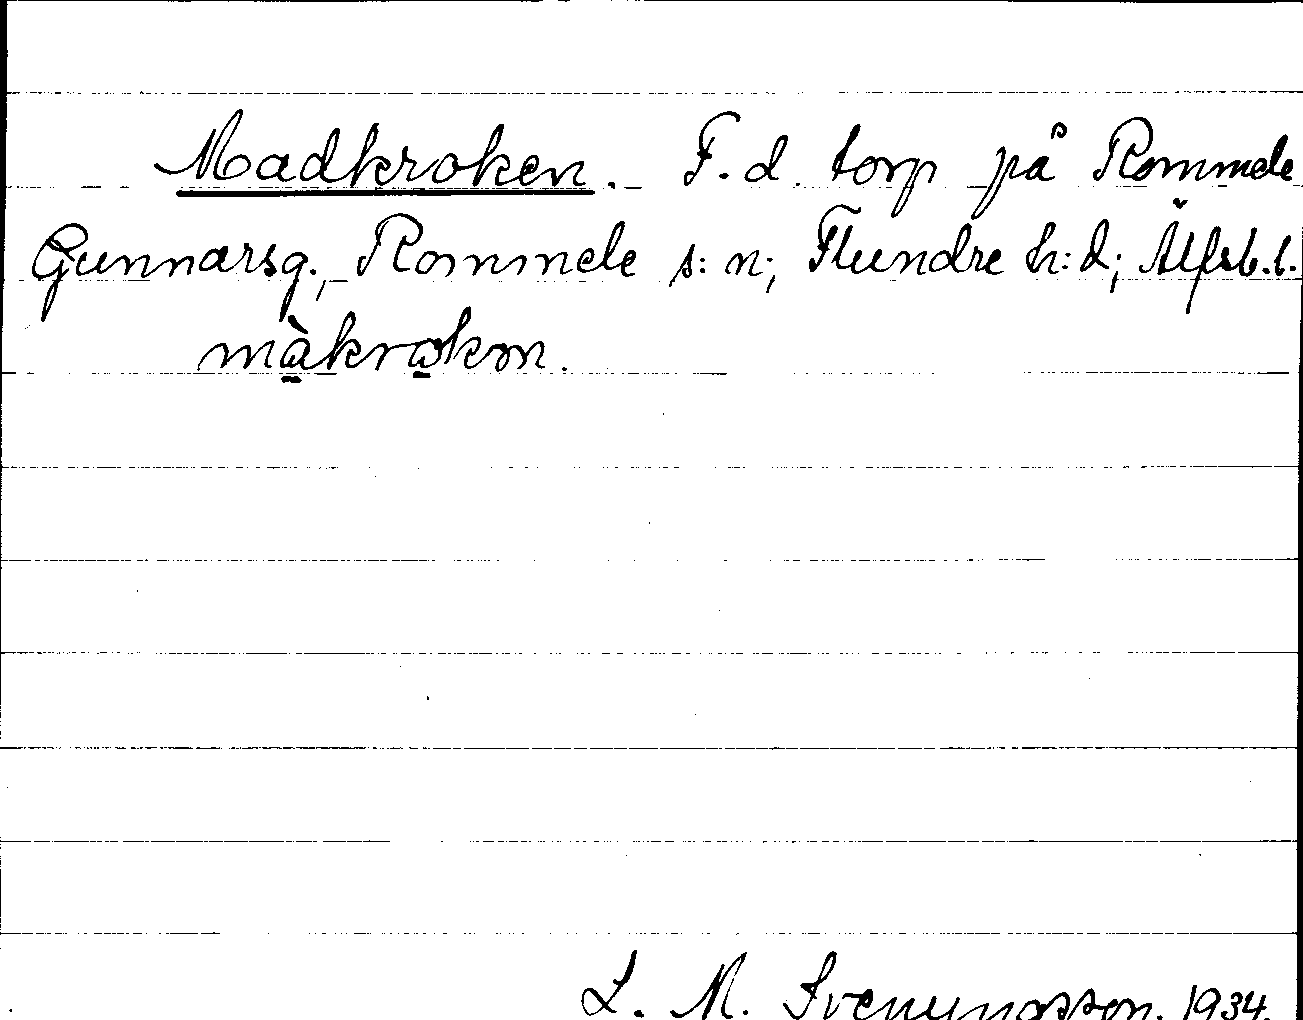 Madkroken. F. d. torp på Rommele
Gunnarsg., Rommele s:n; Flundre h:d; Älfsb. l.
màkrokon.
L. M. Svenungsson. 1934.